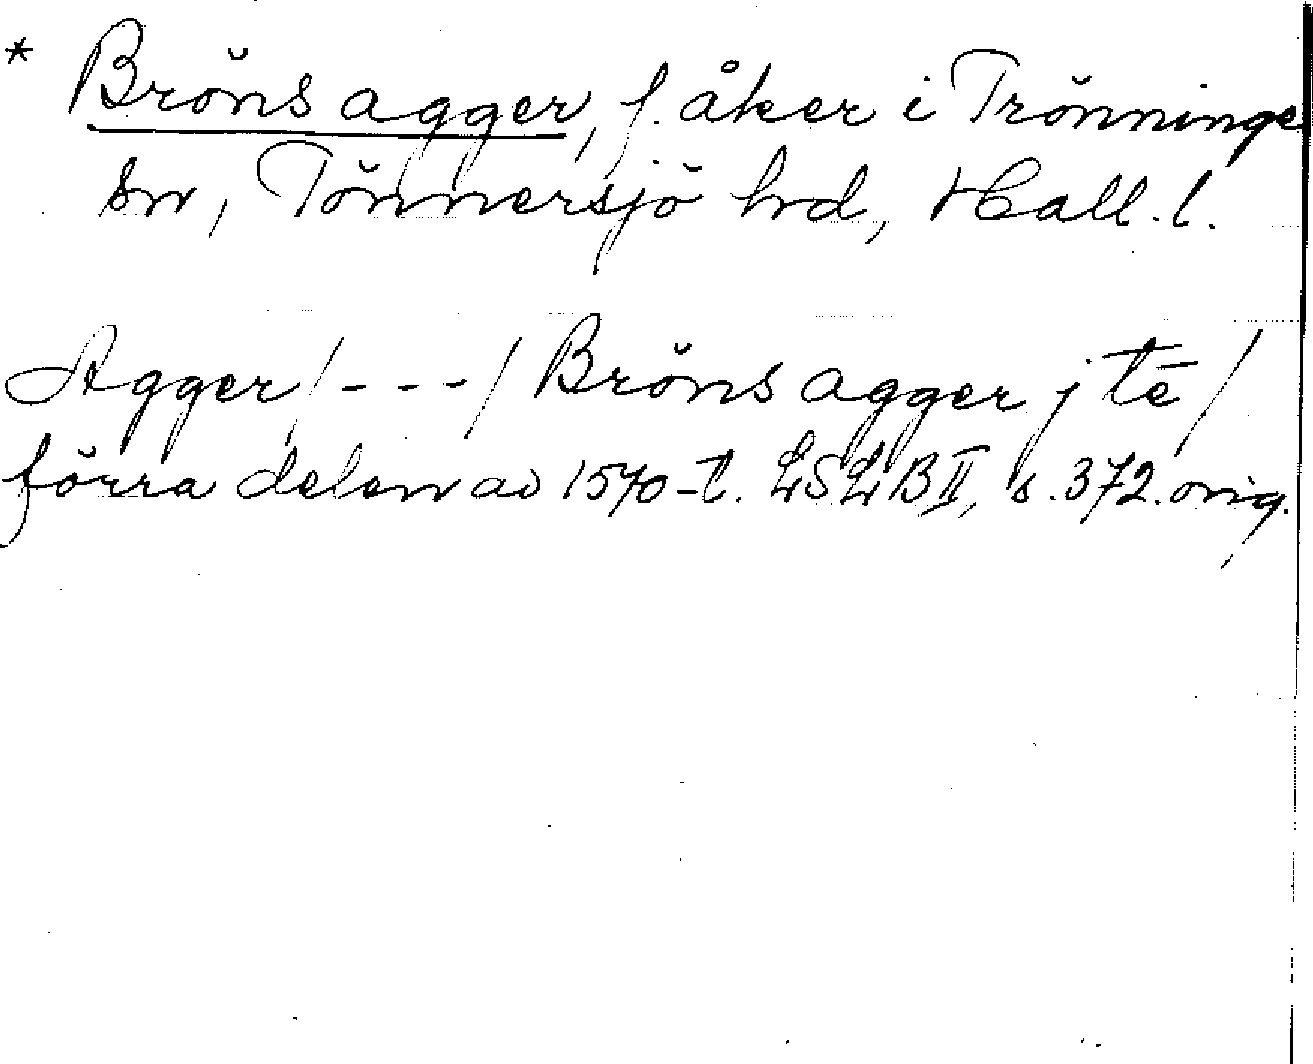 * Bröns agger, f. åker i Trönninge
sn, Tönnersjö hrd, Hall. l.
Agger /---/ Bröns agger j tē /
förra delen av 1570-t. LSLB II, s. 372. orig.